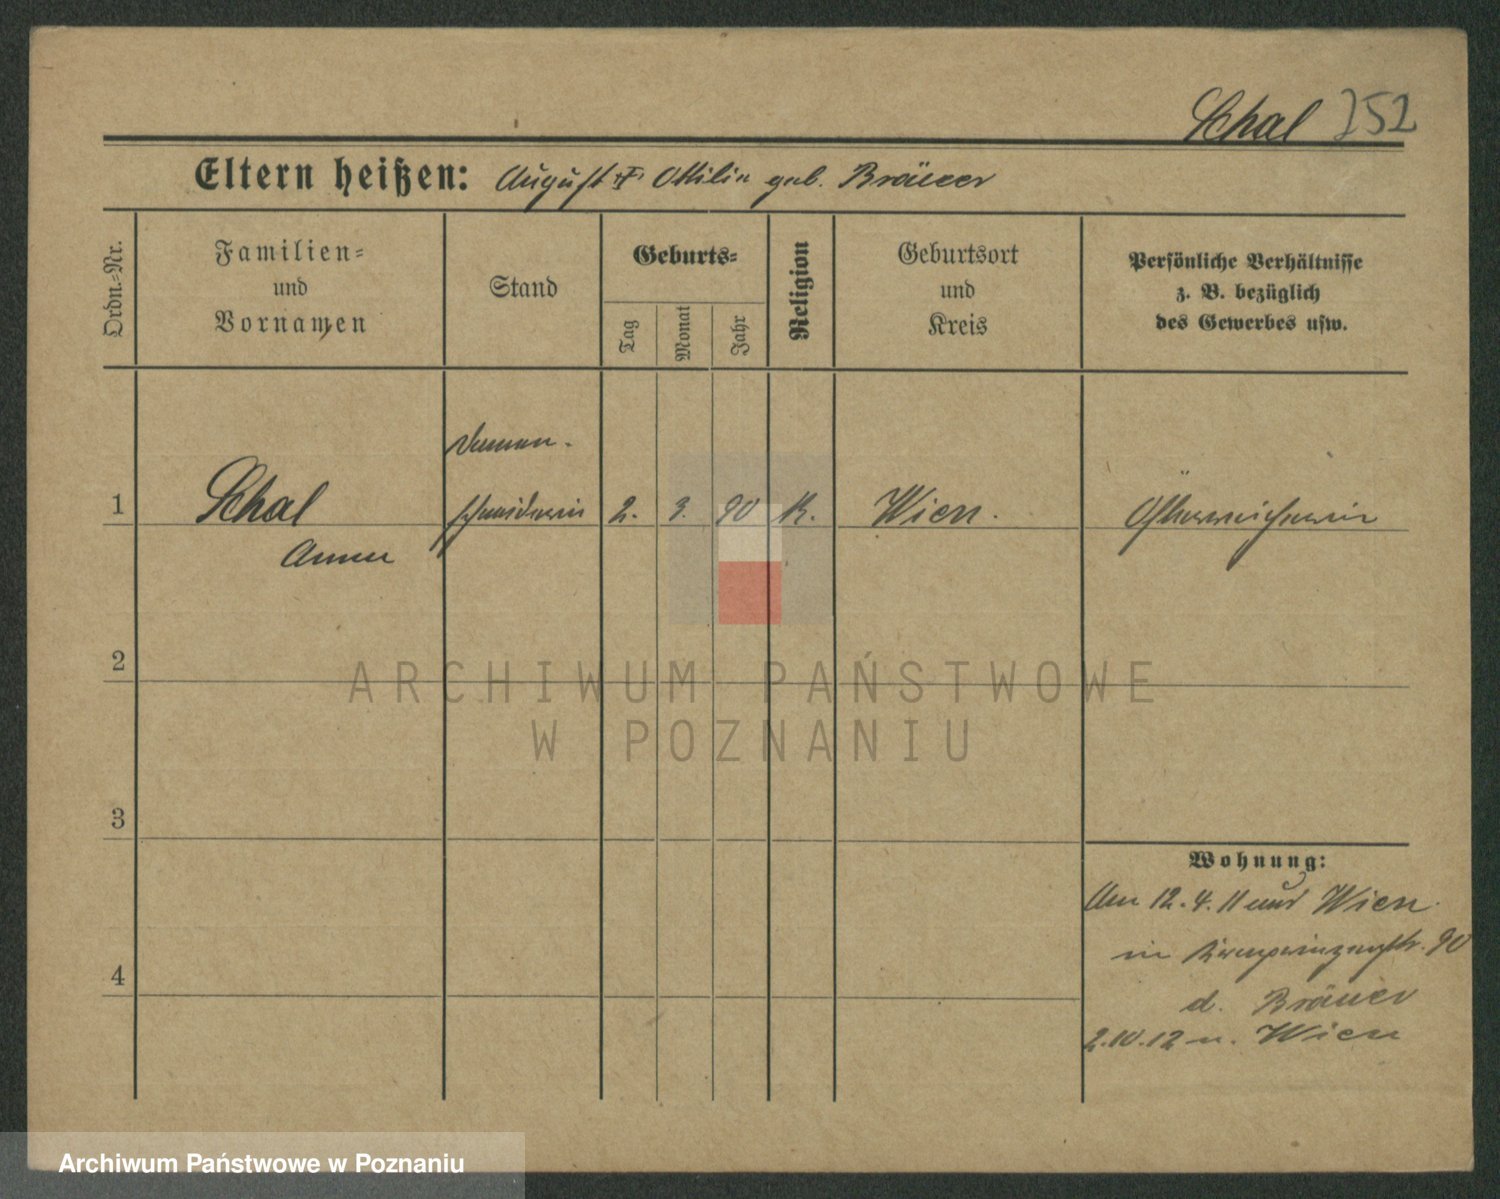 Schal 252
Eltern heißen: August u. Ottilie geb. Bräuer
Ordn.-Nr.
Familien=
und
Vornamen
Stand
Geburts=
Tag
Monat
Jahr
Religion
Geburtsort
und
Kreis
Persönliche Verhältnisse
z. B. bezüglich
des Gewerbes usw.
Damen-
1 Schal schneiderin 2. 3. 90 K. Wien. Österreicherin
Anna
2
3
4
Wohnung:
Am 12.4.11 aus Wien
in Kronprinzenstr. 90
b. Bräuer
2.10.12 n. Wien
ARCHIWUM PAŃSTWOWE
W POZNANIU
Archiwum Państwowe w Poznaniu